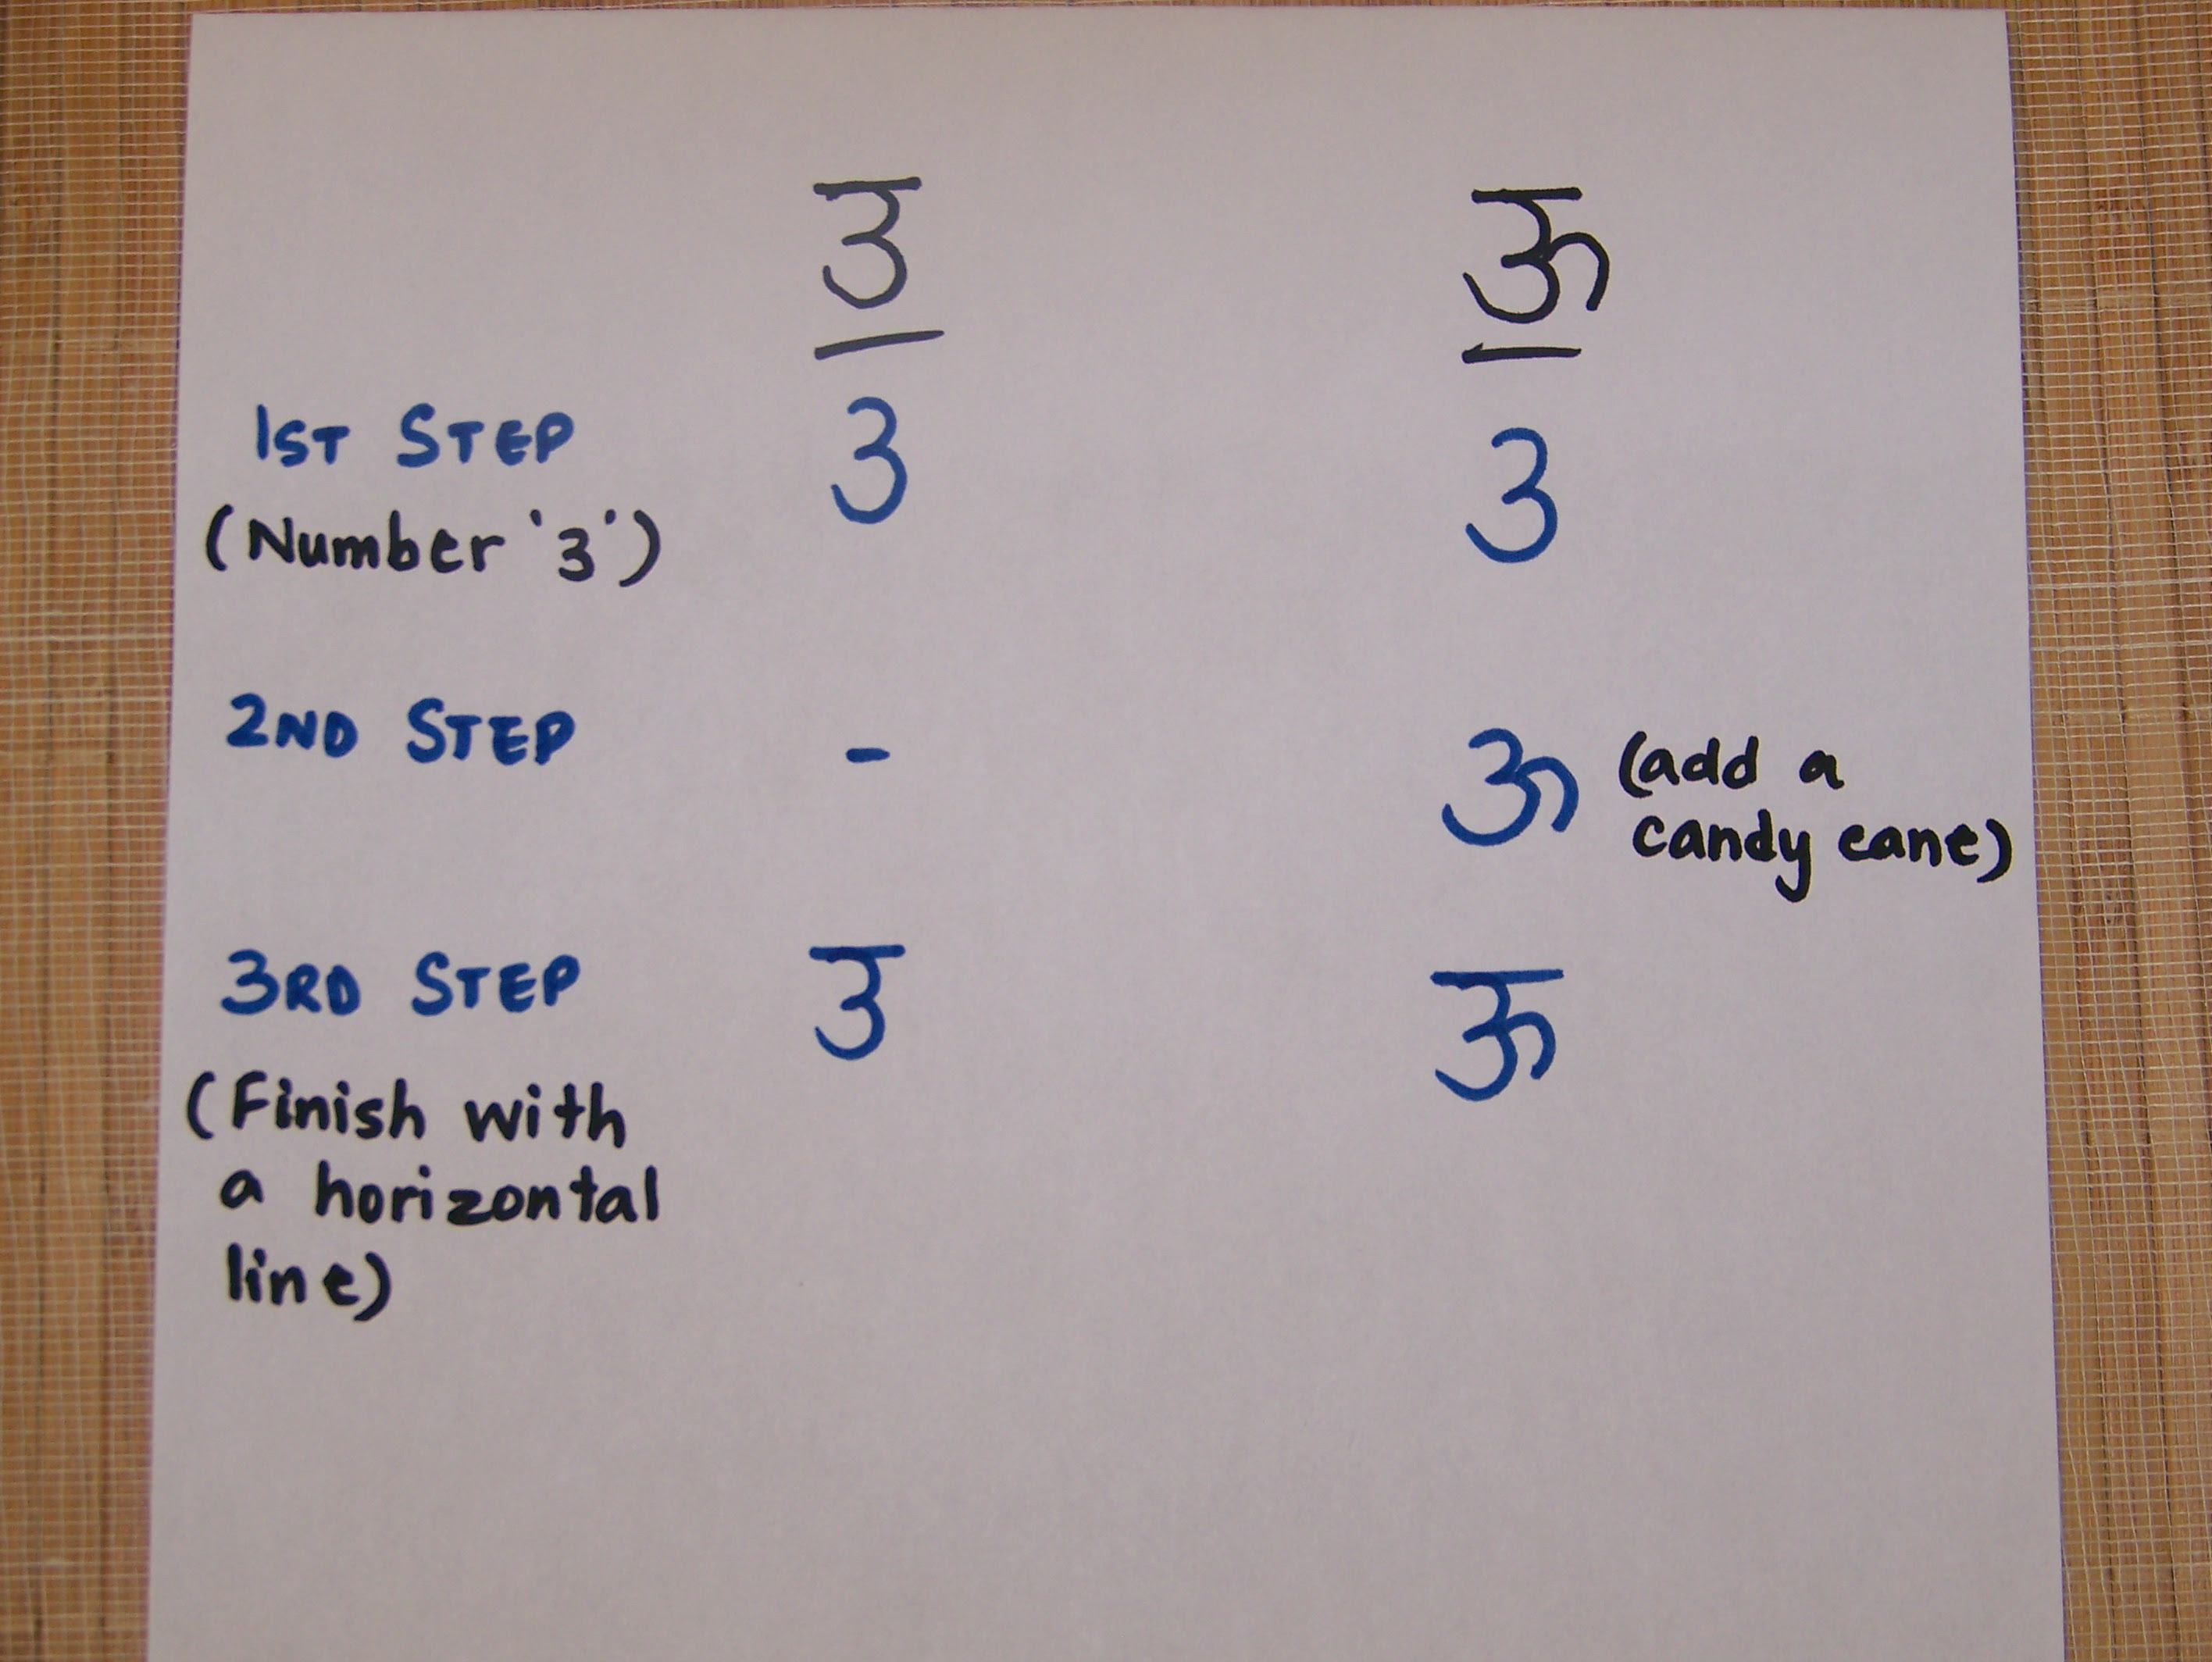 उ ऊ
1ST STEP 3 3
(Number '3')
2ND STEP - 3 (add a
candy cane)
3RD STEP उ ऊ
(Finish with
a horizontal
line)